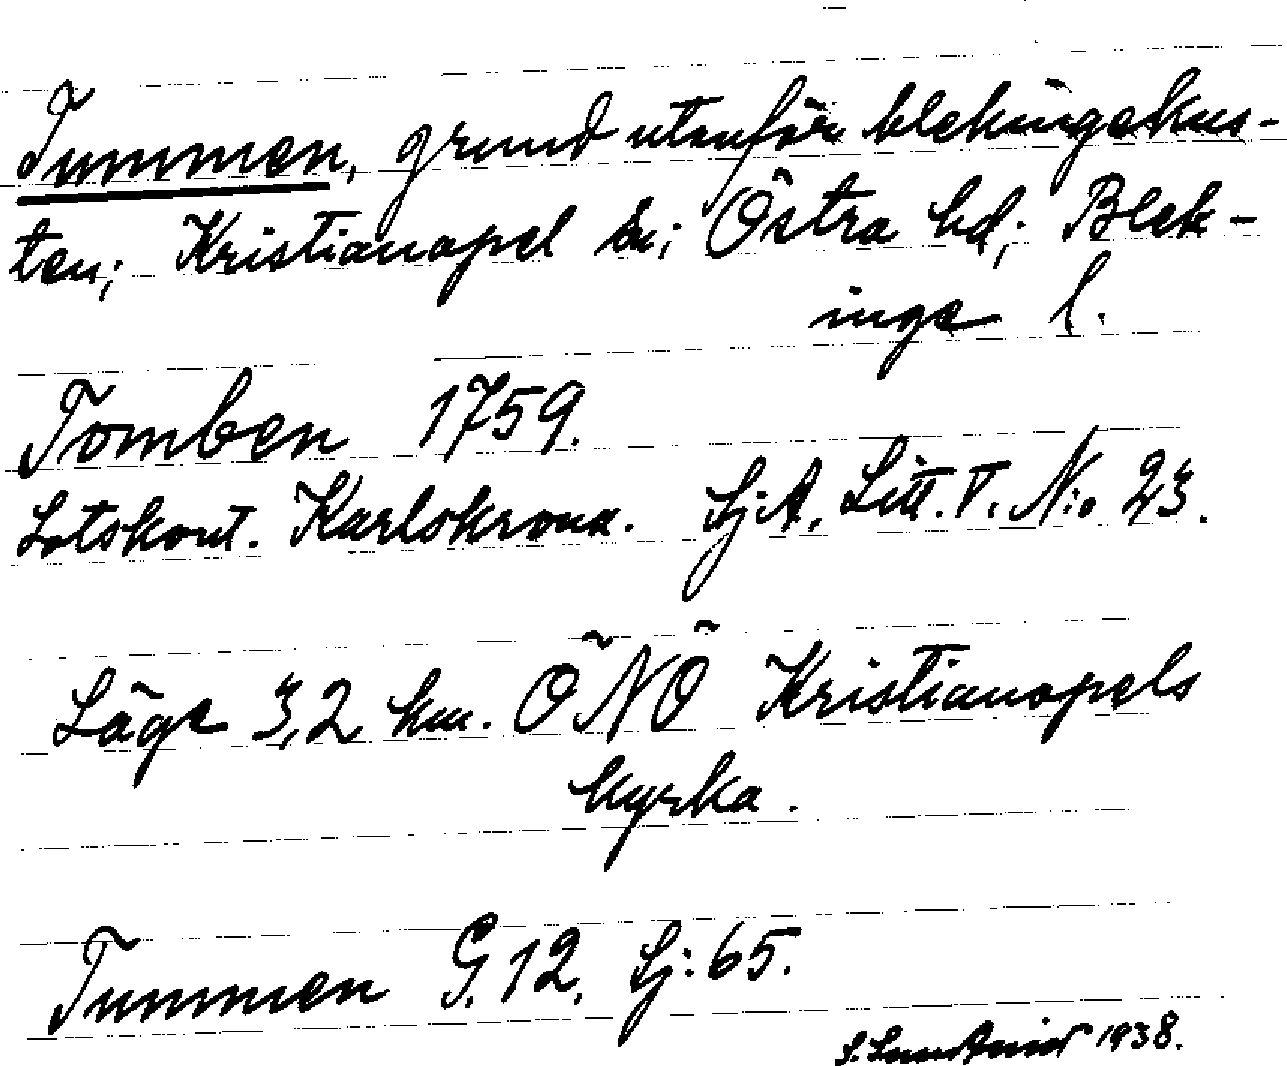 Tummen, grund utanför blekingekus-
ten; Kristianopel sn; Östra hd; Blek-
inge l.
Tomben 1759.
Lotskont. Karlskrona. SjA, Litt. V. N:o 23.
Läge 3,2 km. ÖNÖ Kristianopels
kyrka.
Tummen G. 12. Sj: 65.
1938.